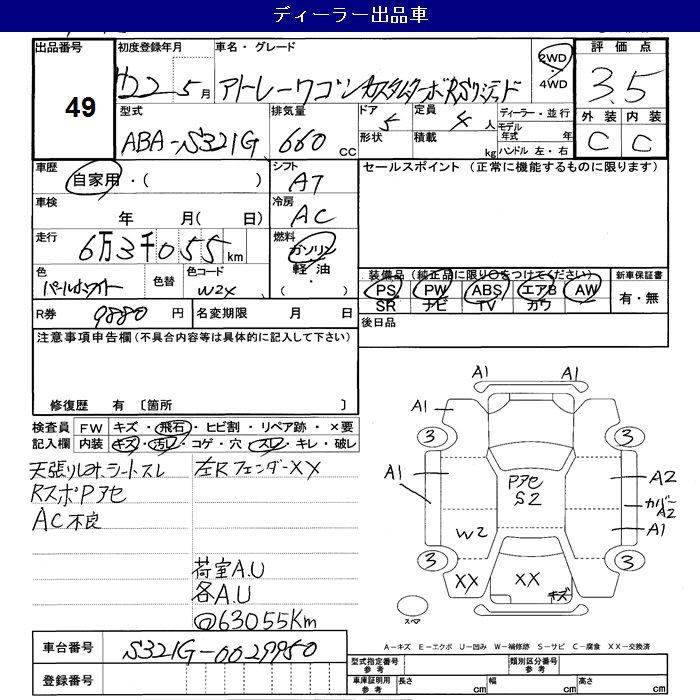 ディーラー出品車
出品番号 初度登録年月 車名・グレード 2WD・4WD 評価点
49 H22 5月 アトレーワゴンカスタムターボRSリミテッド 3.5
型式 排気量 ドア 定員 ディーラー・並行 外装 内装
ABA-S321G 660 CC 5 4人 モデル年式 年 C C
形状 積載 kg ハンドル 左・右
車歴 シフト セールスポイント (正常に機能するものに限ります)
自家用・( ) AT
車検 年 月( 日) 冷房 AC
走行 6万3千055km 燃料 ガソリン
軽油
・( )
色 色替 色コード
パールホワイト W2X
装備品 (純正品に限り○をつけてください) 新車保証書
PS PW ABS エアB AW 有・無
SR ナビ TV カワ
R券 9880円 名変期限 月 日 後日品
注意事項申告欄 (不具合内容等は具体的に記入して下さい)
修復歴 有 〔箇所 〕
検査員 FW キズ・飛石・ヒビ割・リペア跡・×要
記入欄 内装 キズ・汚レ・コゲ・穴・スレ・キレ・破レ
天張りしみ、シートスレ 左Rフェンダー××
RスポPアセ
AC不良
荷室A.U
各A.U
@63055Km
A1 A1
A1
3 3
A1 Pアセ A2
S2 カバー
A2
A1
W2
3 3
XX XX キズ
スペア
A－キズ E－エクボ U－凹み W－補修跡 S－サビ C－腐食 XX－交換済
車台番号 S321G-0029950
登録番号
型式指定番号 参考 類別区分番号 参考
車庫証明用 参考 長さ cm 幅 cm 高さ cm